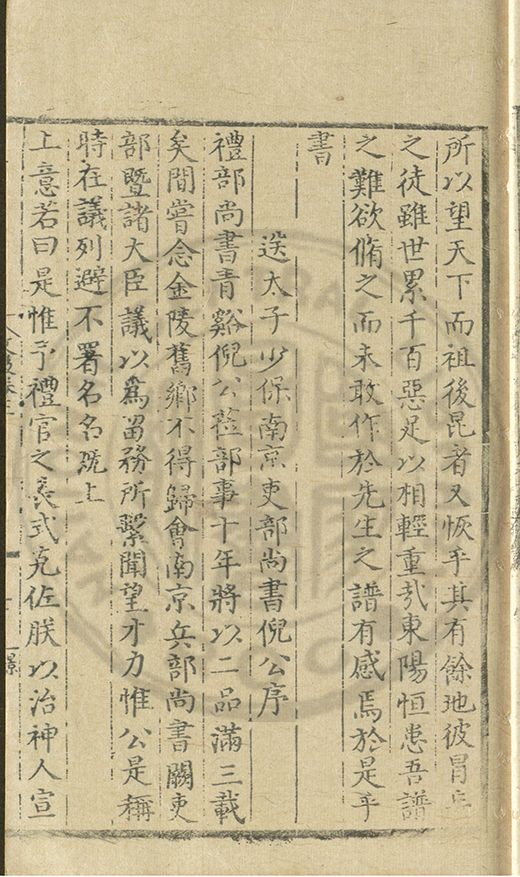 所以望天下而祖後昆者又恢乎其有餘地彼冒
之徒雖世累千百惡足以相輕重㢤東陽恒患吾譜
之難欲脩之而未敢作於先生之譜有感焉於是乎
書
送太子少保南京吏部尚書倪公序
禮部尚書青谿倪公蒞部事十年將以二品滿三載
矣間嘗念金陵舊鄉不得歸會南京兵部尚書闕吏
部暨諸大臣議以爲留務所繫聞望才力惟公是稱
時在議列避不署名名旣上
上意若曰是惟予禮官之長式克佐朕以治神人宣